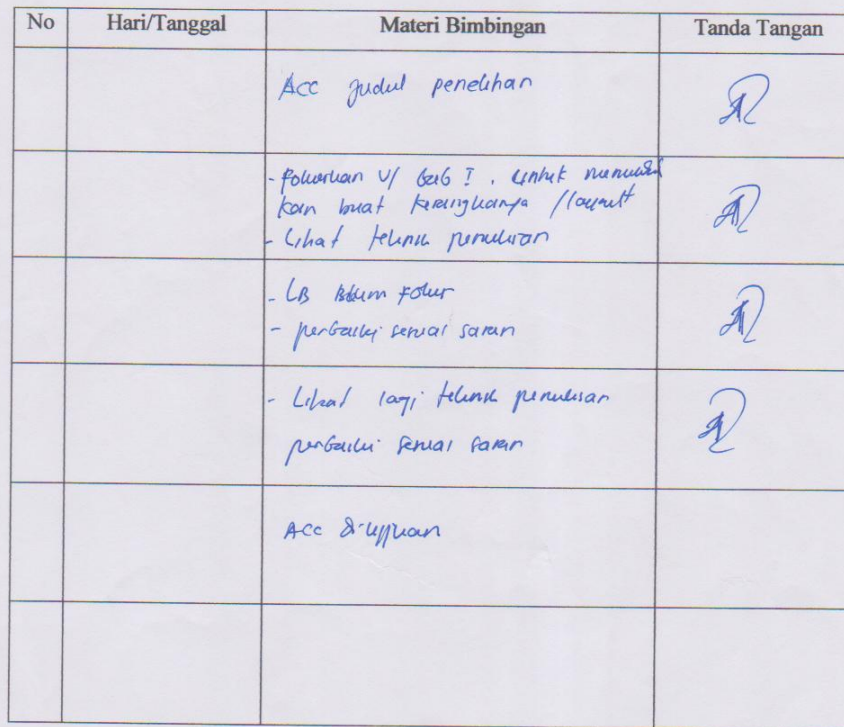 No Hari/Tanggal Materi Bimbingan Tanda Tangan
ACC Judul penelitian
- Fokuskan u/ bab I. untuk
kan buat kerangkanya /layout
- Lihat teknik penulisan
- LB Belum Fokus
- perbaiki sesuai saran
- Lihat lagi teknik penulisan
perbaiki sesuai saran
ACC di ujikan